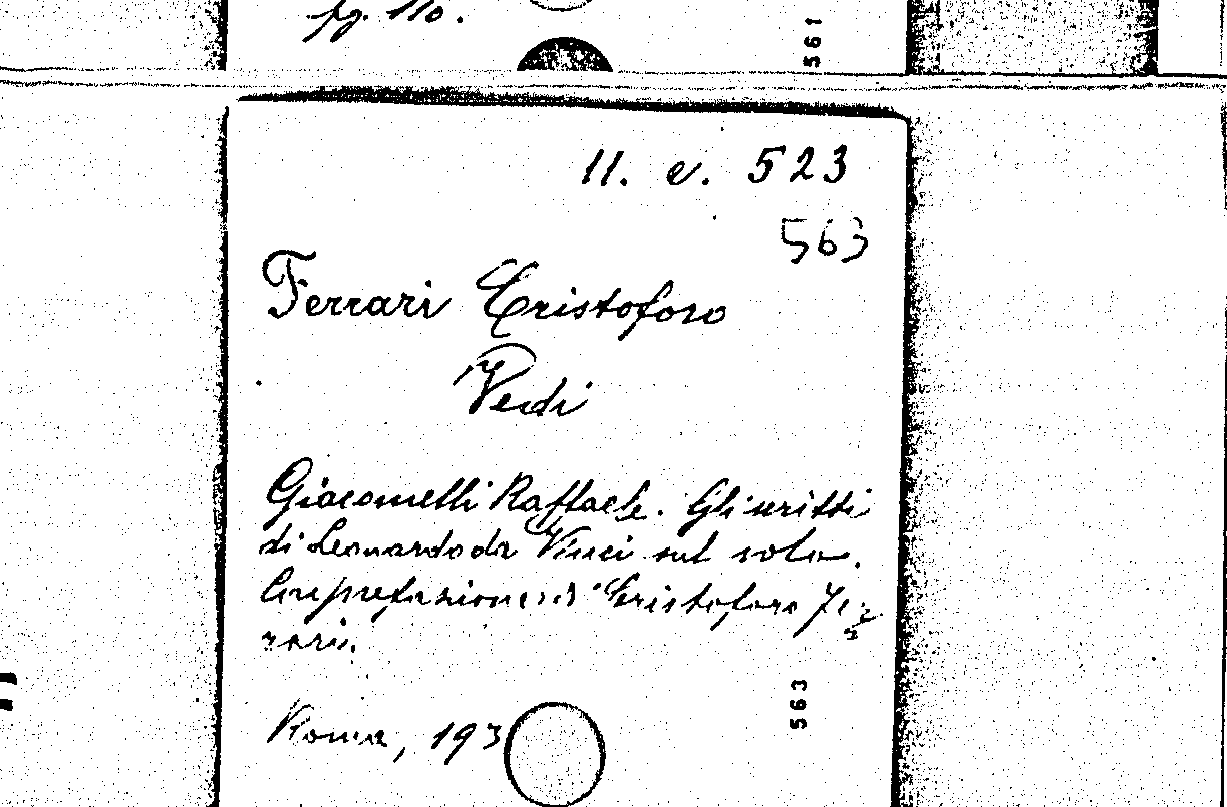 fg. 110.
561
11. e. 523
563
Ferrari Cristoforo
Vedi
Giacomelli Raffaele. Gli scritti
di Leonardo da Vinci sul volo.
Con prefazione di Cristoforo Fer=
rari.
563
Roma, 193